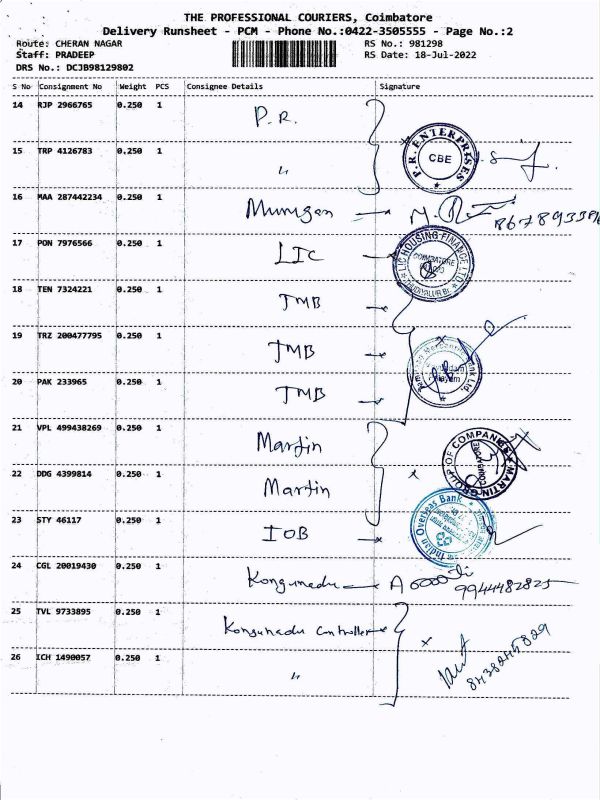 THE PROFESSIONAL COURIERS, Coimbatore
Delivery Runsheet - PCM - Phone No.:0422-3505555 - Page No.:2
Route: CHERAN NAGAR RS No.: 981298
Staff: PRADEEP RS Date: 18-Jul-2022
DRS No.: DCJB98129802
S No Consignment No Weight PCS Consignee Details Signature
14 RJP 2966765 0.250 1 P.R.
P.R. ENTERPRISES CBE
15 TRP 4126783 0.250 1 "
16 MAA 287442234 0.250 1 Murugan
17 PON 7976566 0.250 1 LIC
LIC HOUSING FINANCE LTD COIMBATORE
18 TEN 7324221 0.250 1 TMB
19 TRZ 200477795 0.250 1 TMB
20 PAK 233965 0.250 1 TMB
21 VPL 499438269 0.250 1 Martin
MARTIN GROUP OF COMPANIES COIMBATORE
22 DDG 4399814 0.250 1 Martin
23 STY 46117 0.250 1 IOB
Indian Overseas Bank
24 CGL 20019430 0.250 1 Kongunadu 9944482825
25 TVL 9733895 0.250 1 Kongunadu Controller
26 ICH 1490057 0.250 1 "
8438245829